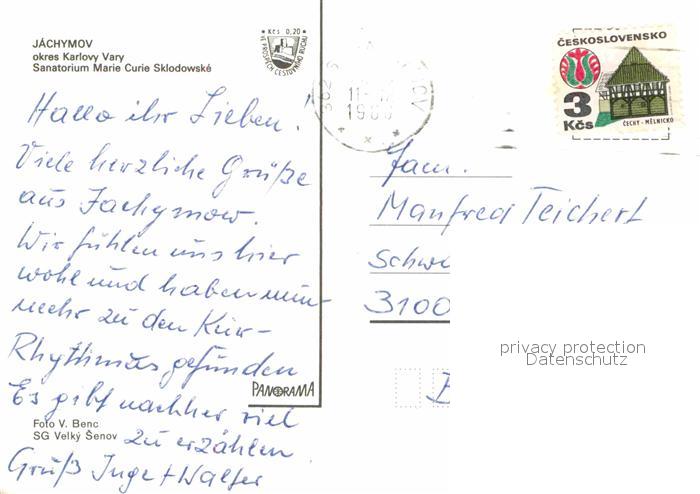 JÁCHYMOV
okres Karlovy Vary
Sanatorium Marie Curie Sklodowské
Kčs 0,20
VE PROSPĚCH CESTOVNÍHO RUCHU
Hallo ihr Lieben!
Viele herzliche Grüße
aus Jachymow.
Wir fühlen uns hier
wohl und haben nun-
mehr zu den Kur-
Rhythmus gefunden
Es gibt nachher viel
zu erzählen
Gruß Inge + Walter
PANORAMA
Foto V. Benc
SG Velký Šenov
ČESKOSLOVENSKO
3
Kčs
ČECHY - MĚLNICKO
Fam.
Manfred Teichert
Schwe
3100
privacy protection
Datenschutz